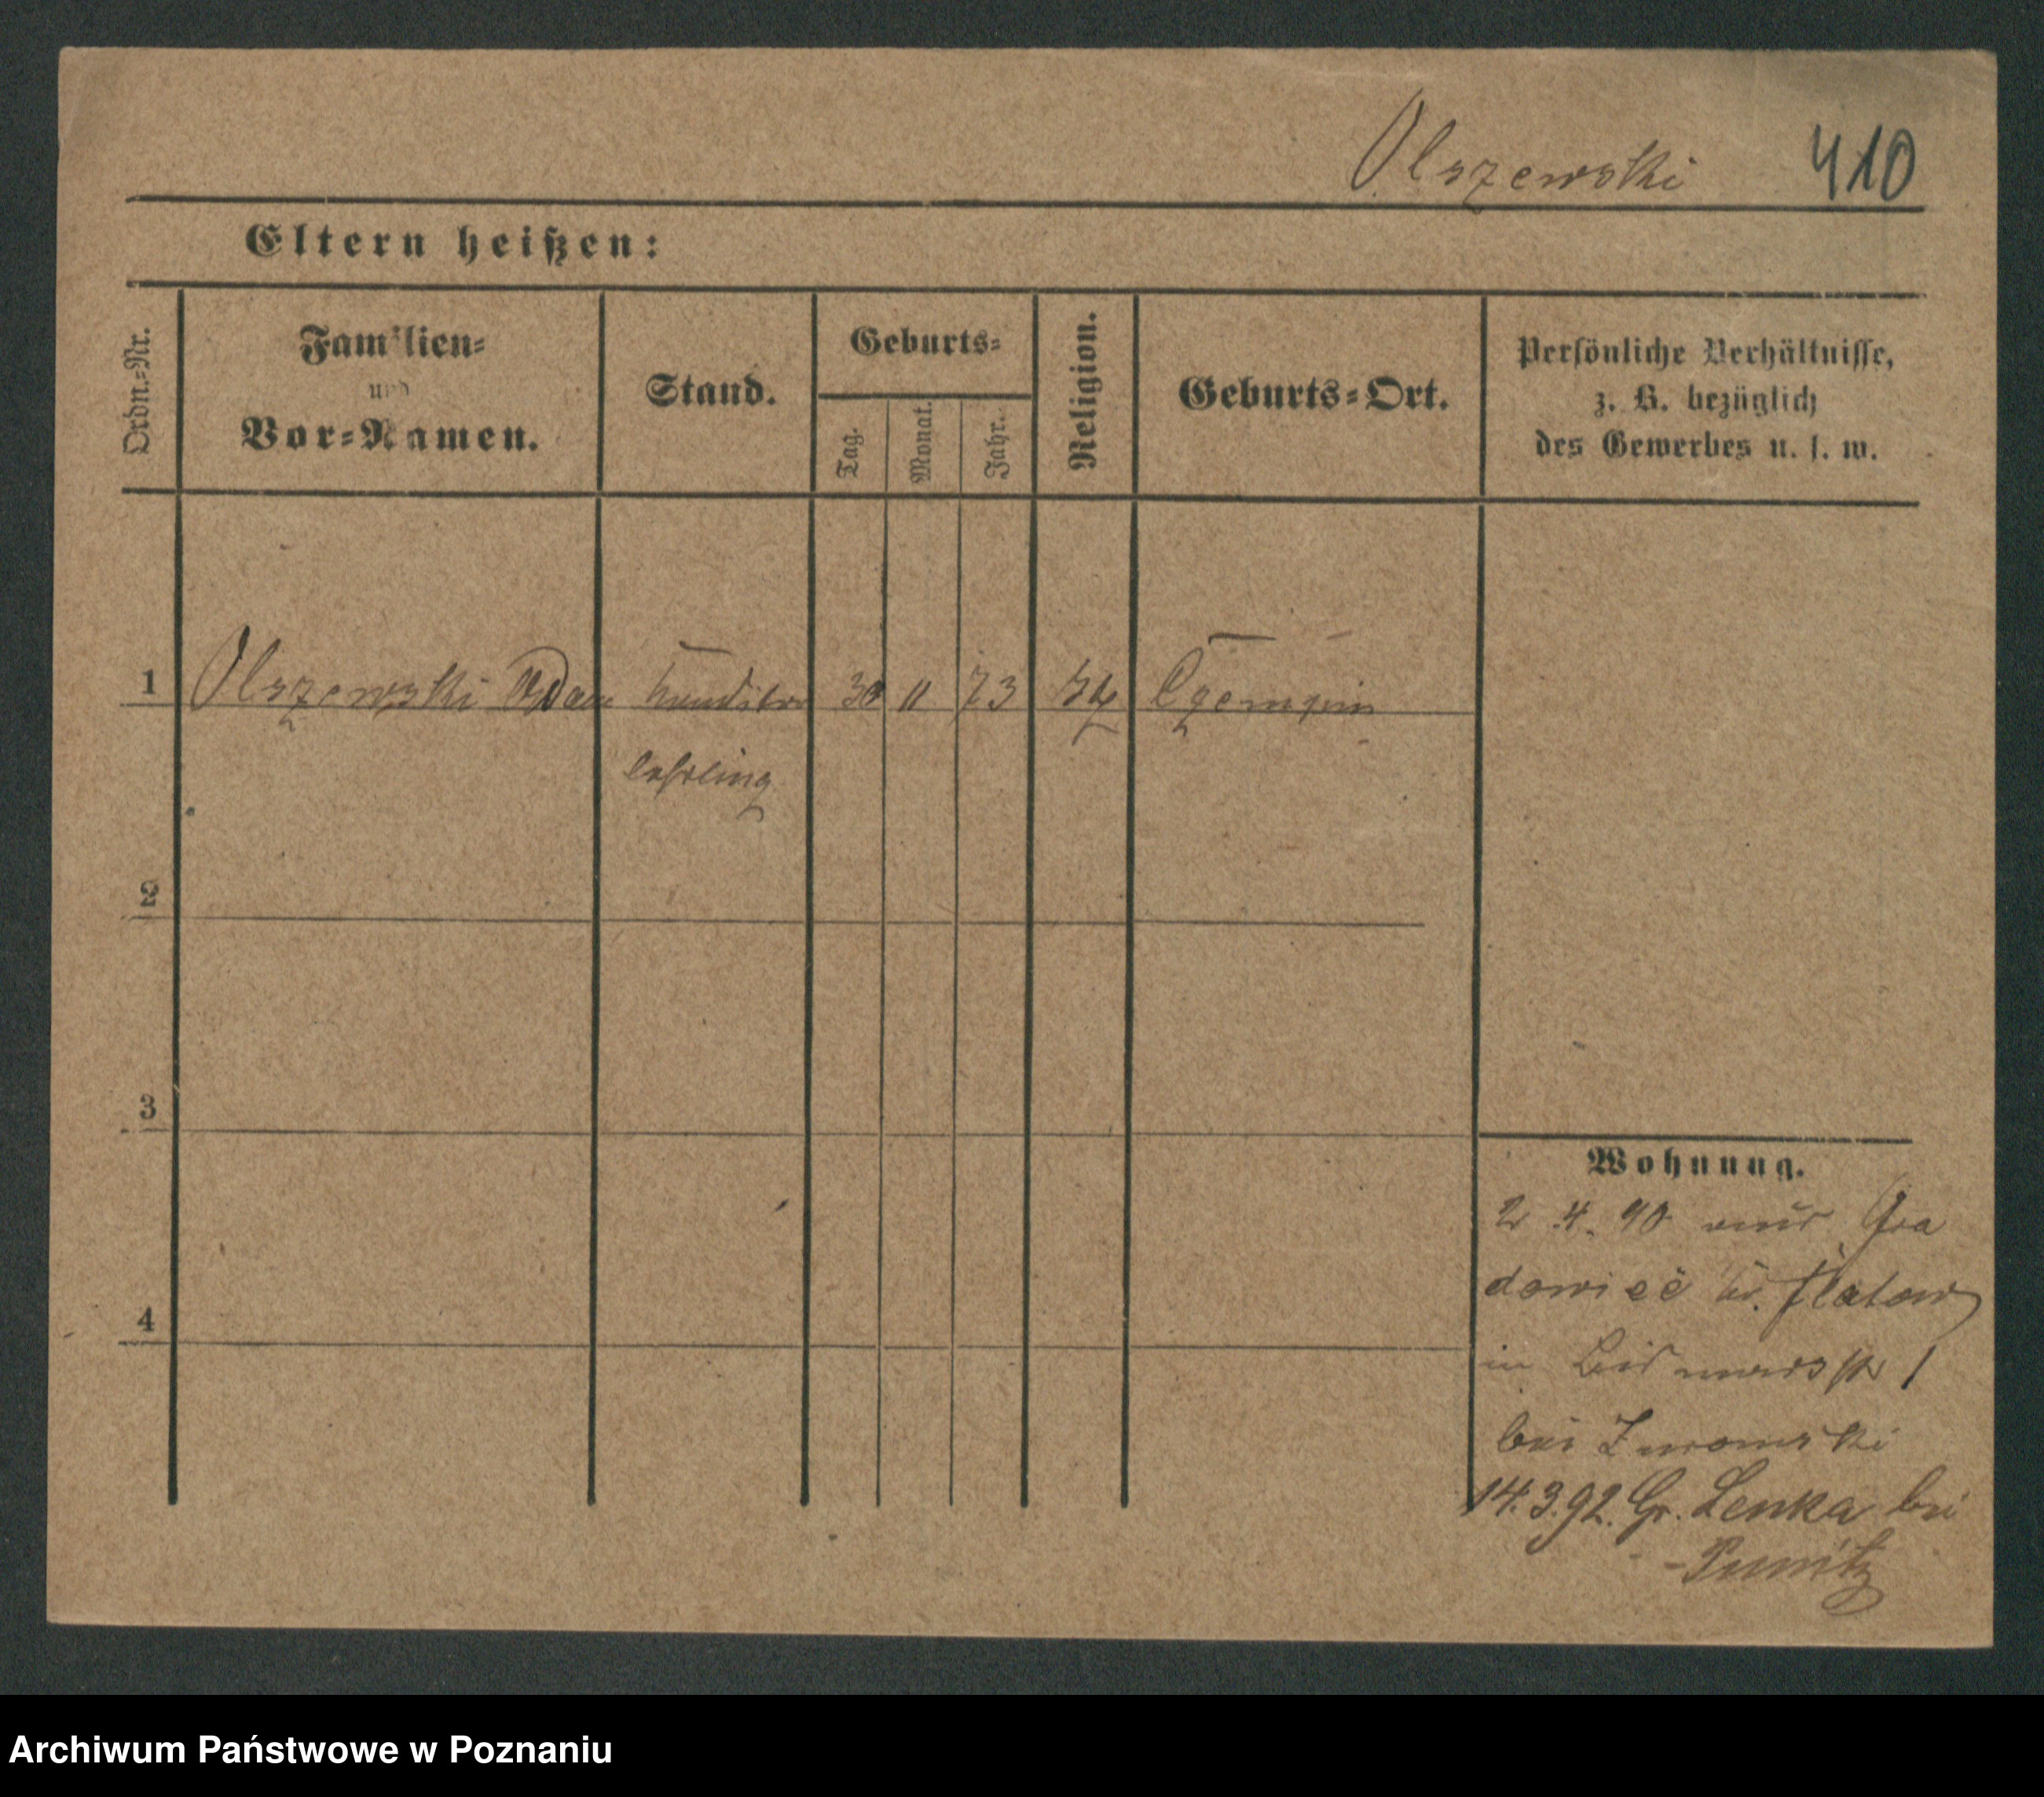 Olszewski 410
Eltern heißen:
Ordn.-Nr.
Familien-
und
Vor-Namen.
Stand.
Geburts-
Tag.
Monat.
Jahr.
Religion.
Geburts-Ort.
Persönliche Verhältnisse,
z. B. bezüglich
des Gewerbes u. s. w.
1 Olszewski Adam Conditor 30 11 73 kth Czempin
lehrling
2
3
4
Wohnung.
2 4. 90 aus
Kr. Flatow
in Bismarckstr 1
bei
14.3.92. Gr. Lenka bei
Punitz
Archiwum Państwowe w Poznaniu